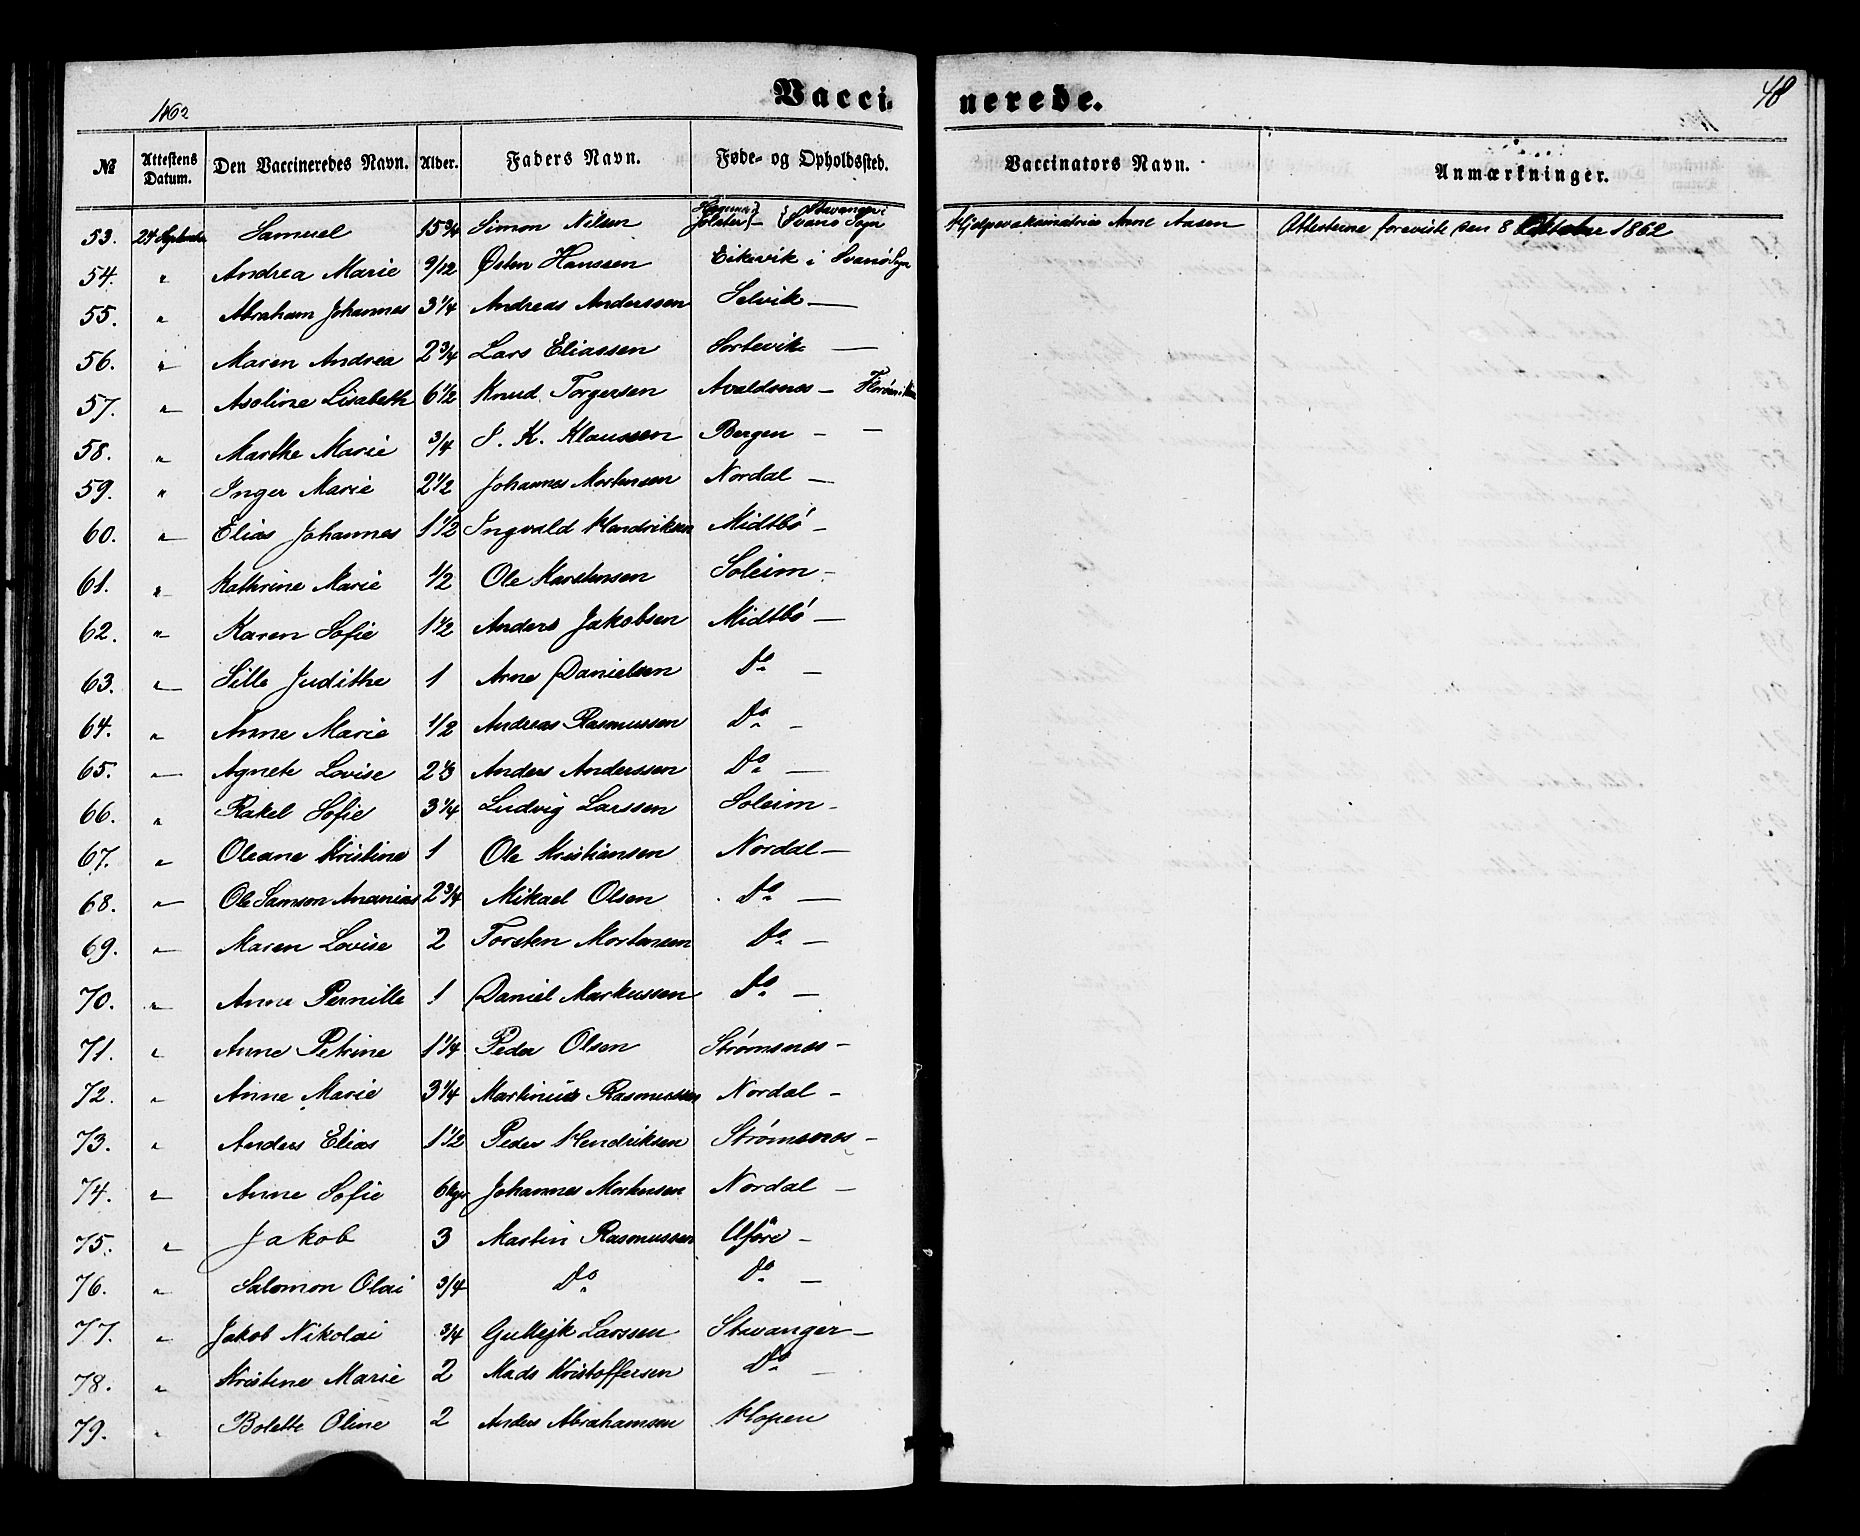 Vaccinerede.
1862
48
№ Attestens Datum. Den Vaccineredes Navn. Alder. Faders Navn. Føde- og Opholdssted. Vaccinators Navn. Anmærkninger.
53. 24 September Samuel 15 3/4 Simon Nilsen Jølster Stavang i Svanø Sogn Hjelpevaksinatrice Anne Aasen Attesterne foreviste den 8 Oktober 1862
54. " Andrea Marie 9/12 Østen Hanssen Eikevik i Svanø Sogn
55. " Abraham Johannes 3 1/4 Andreas Anderssen Selvik —
56. " Maren Andrea 2 3/4 Lars Eliassen Sortevik —
57. " Asoline Lisabeth 6 1/2 Knud Torgersen Avaldsnes — Florøen i
58. " Marthe Marie 3/4 S. K. Klaussen Bergen — —
59. " Inger Marie 2 1/2 Johannes Mortensen Nordal —
60. " Elias Johannes 1 1/2 Ingvald Hendriksen Midtbø —
61. " Kathrine Marie 1/2 Ole Karstensen Soleim —
62. " Karen Sofie 1 1/2 Anders Jakobsen Midtbø —
63. " Sille Judithe 1 Arne Danielsen Do —
64. " Anne Marie 1/2 Andreas Rasmussen Do —
65. " Agnete Lovise 2 1/3 Anders Anderssen Do —
66. " Rakel Sofie 3 1/4 Ludvig Larssen Soleim —
67. " Oleane Kristine 1 Ole Kristiansen Nordal —
68. " Ole Samson Ananias 2 3/4 Mikael Olsen Do —
69. " Maren Lovise 2 Torsten Mortensen Do —
70. " Anne Pernille 1 Daniel Markussen Do —
71. " Anne Petrine 1 1/4 Peder Olsen Strømsnes —
72. " Anne Marie 3 1/4 Martinus Rasmussen Nordal —
73. " Anders Elias 1 1/2 Peder Hendriksen Strømsnes —
74. " Anne Sofie 6 Uger Johannes Mortensen Nordal —
75. " Jakob 3 Martin Rasmussen Uføre —
76. " Salomon Olai 3/4 Do Do —
77. " Jakob Nikolai 3/4 Gullejk Larssen Stavanger —
78. " Kristine Marie 2 Mads Kristoffersen Do —
79. " Bolette Oline 2 Anders Abrahamsen Hopen